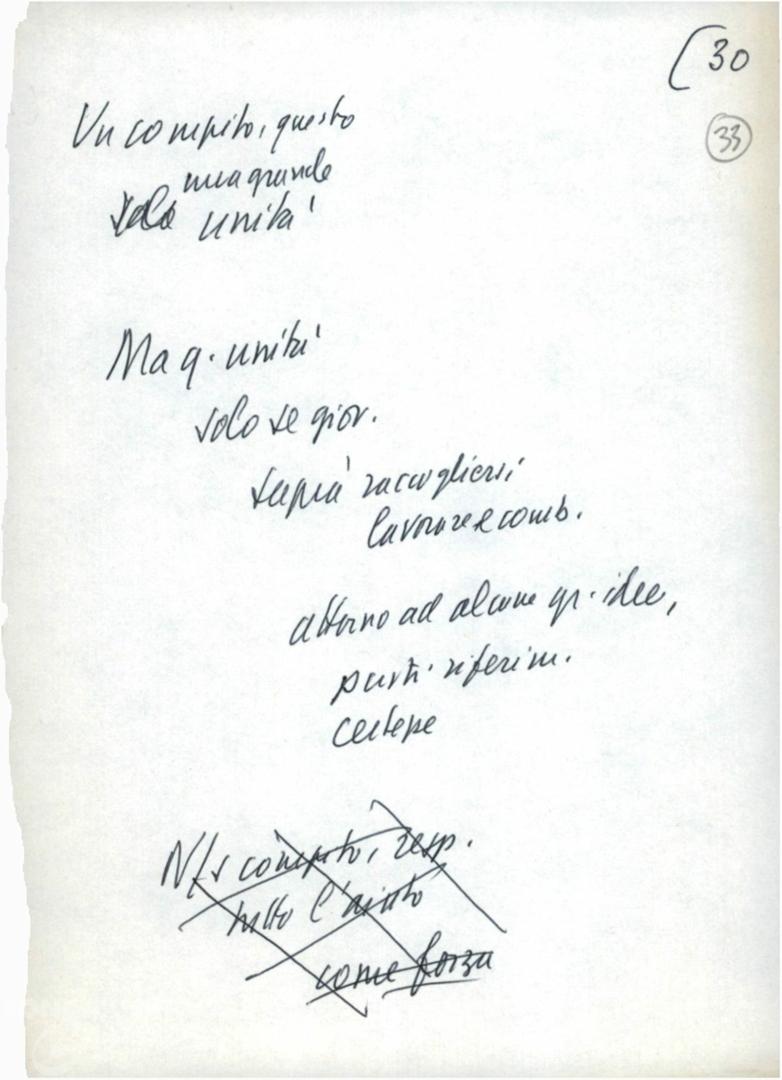 (30
33
Un compito, questo
una grande
solo unità
Ma q. unità
solo se giov.
saprà raccogliersi
lavorare e comb.
attorno ad alcune gr. idee,
punti riferim.
certezze
N/s compito, resp.
tutto l'aiuto
come forza